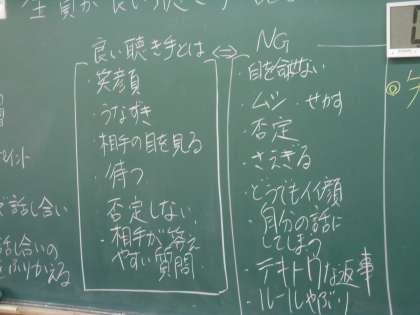 良い聴き手とは ⇔ NG
・笑顔
・うなずき
・相手の目を見る
・待つ
・否定しない
・相手が答え
やすい質問
・目を合せない
・ムシ ・せかす
・否定
・さえぎる
・どうでもイイ顔
・自分の話に
してしまう
・テキトウな返事
・ルールやぶり
話し合い
話し合いの
ふりかえる